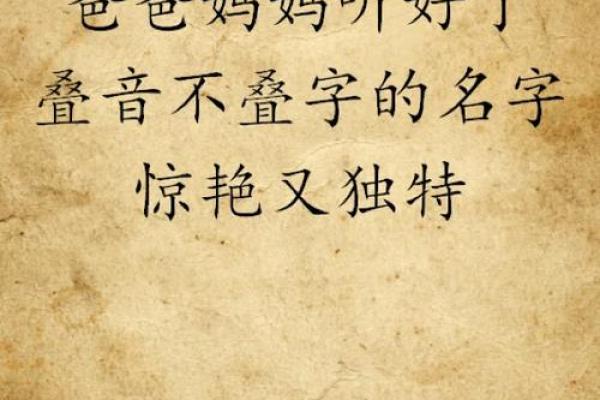 爸爸妈妈听好了
叠音不叠字的名字
惊艳又独特